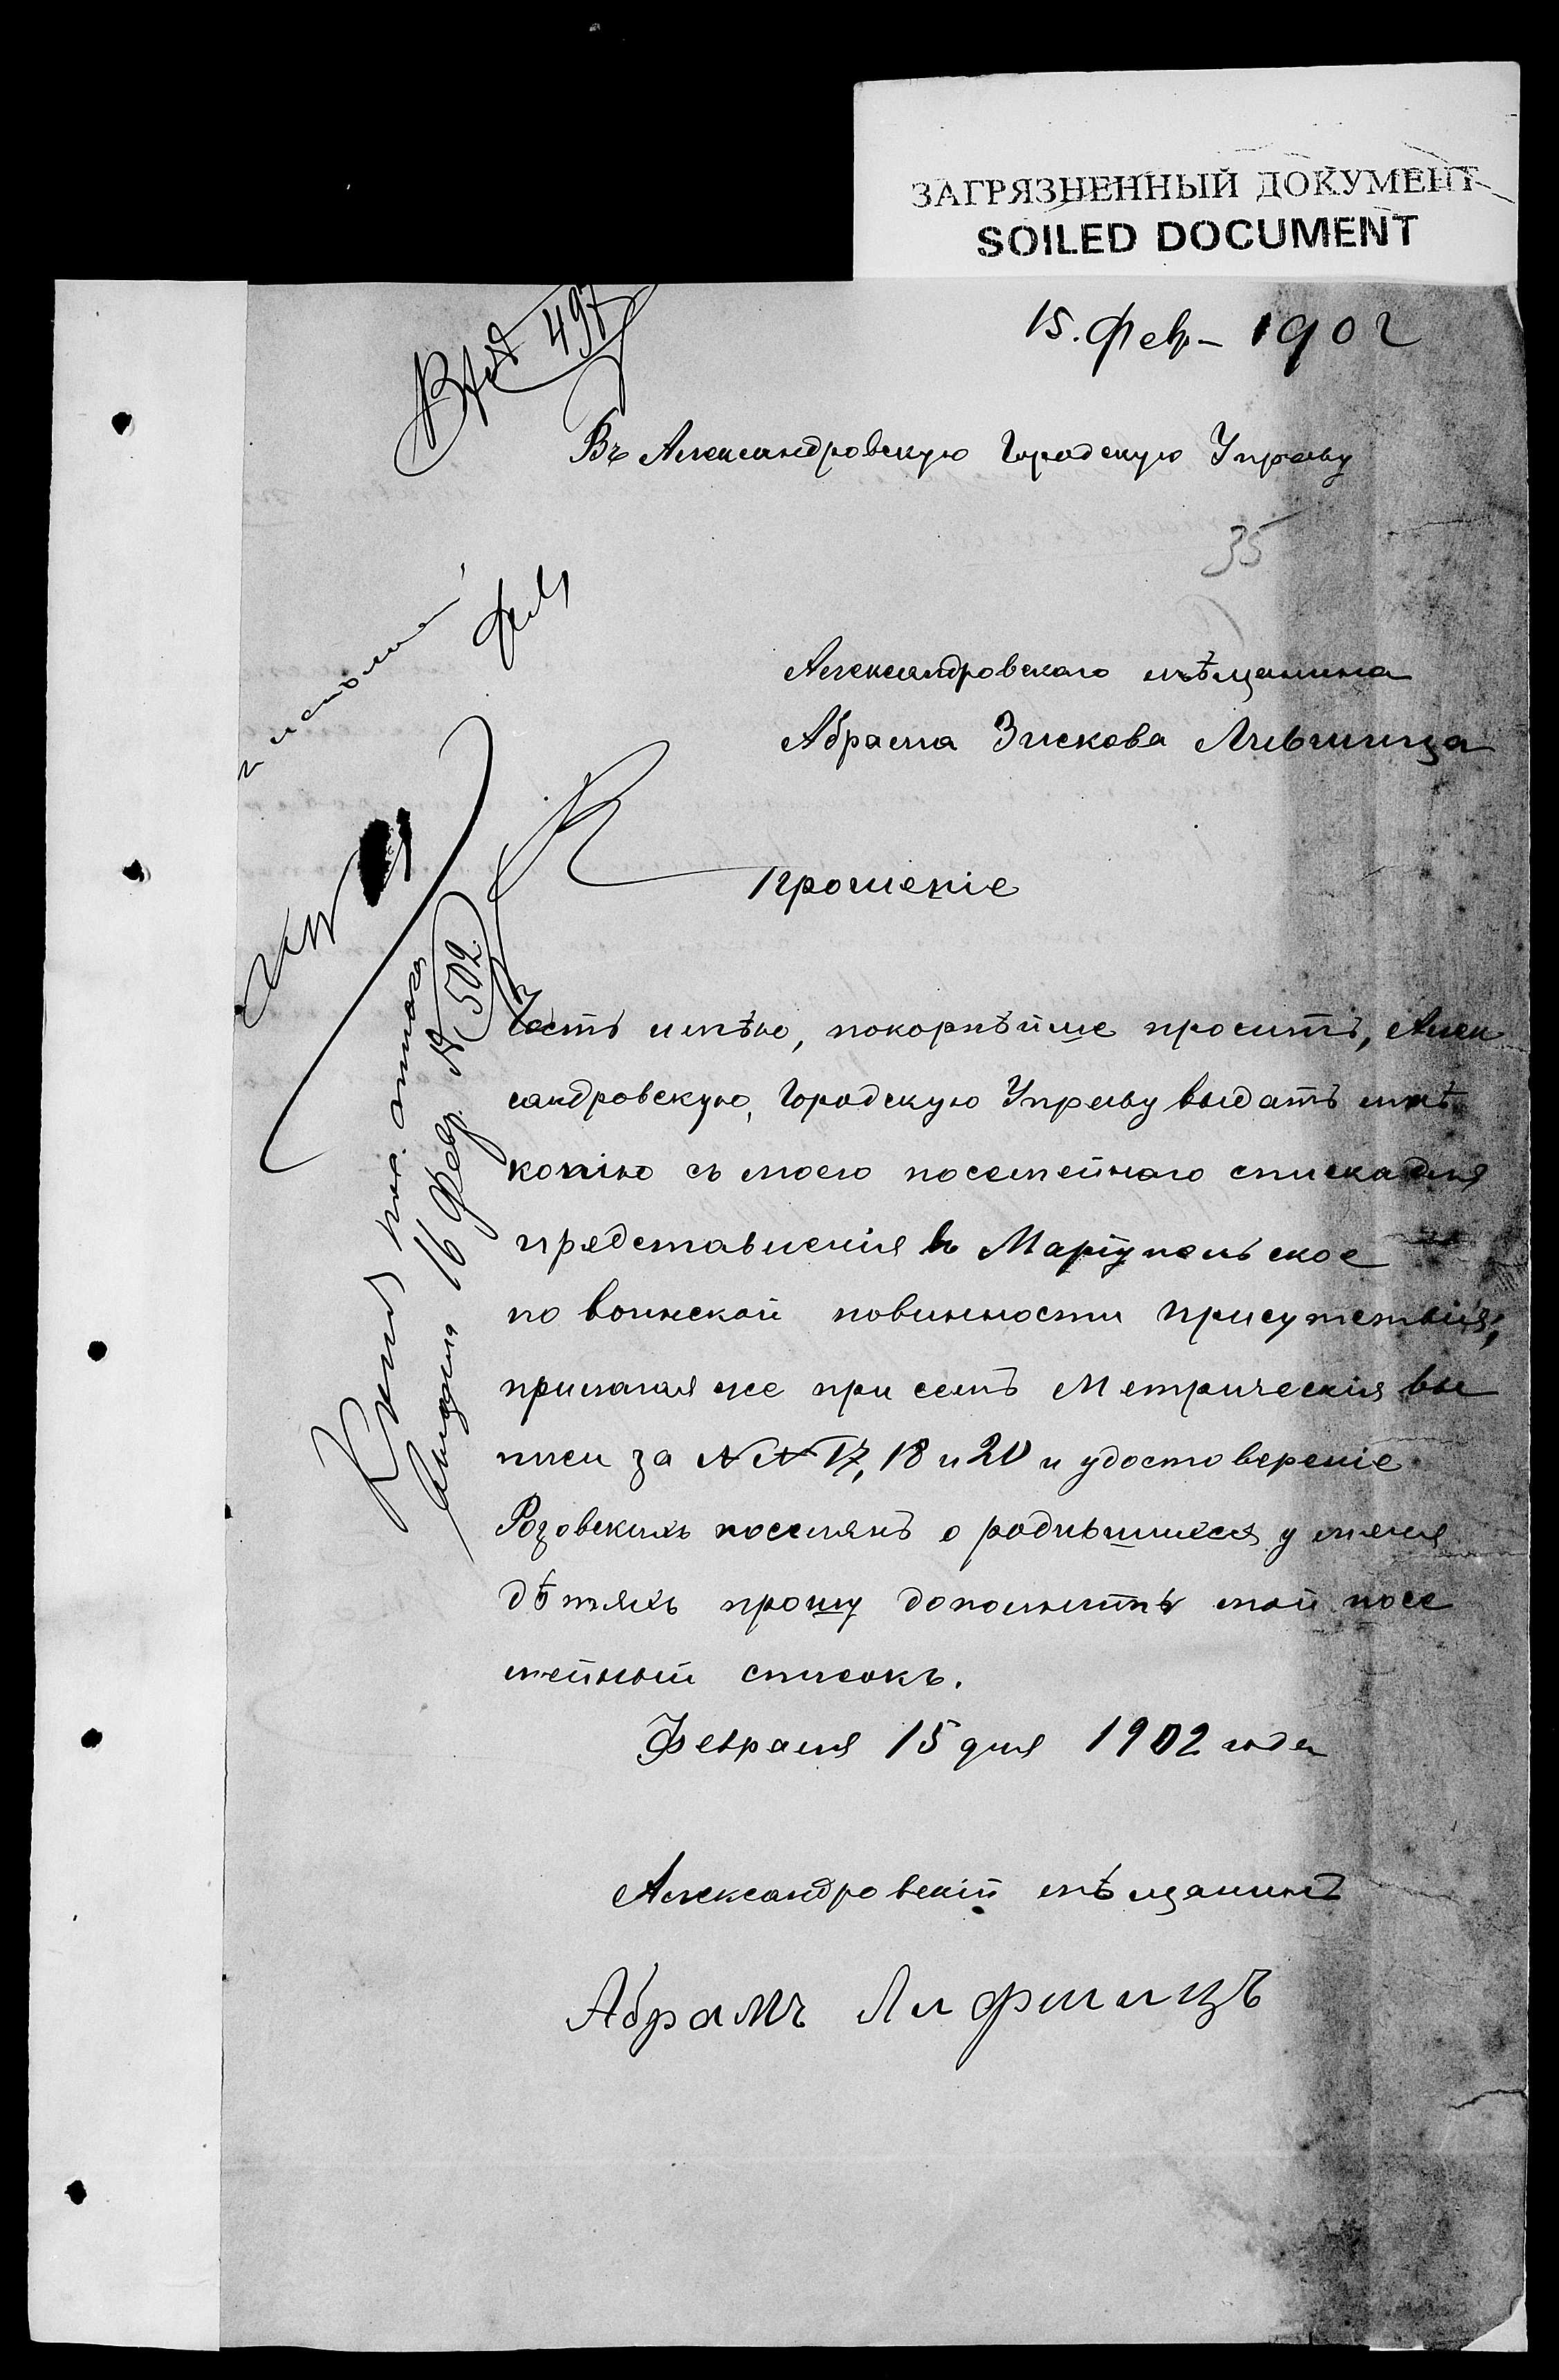 ЗАГРЯЗНЕННЫЙ ДОКУМЕНТ
SOILED DOCUMENT
15. Фев- 1902
Вход 497
Въ Александровскую Городскую Управу
35
Александровскаго мѣщанина
Абрама Зискова Лившица
Прошеніе
Честь имѣю, покорнѣйше просить, Алек
сандровскую, Городскую Управу выдать мнѣ
копію съ моего посемейнаго списка для
представленія въ Маріупольское
по воинской повинности присутствія,
прилагая же при семъ Метрическія вы
писи за №№ 17, 18 и 20 и удостовереніе
Розовскихъ поселянъ о родившихся у меня
дѣтяхъ прошу дополнить мой посе
мейный списокъ.
Февраля 15 дня 1902 года
Александровскій мѣщанинъ
Абрамъ Лифшицъ
16 Февр. № 502